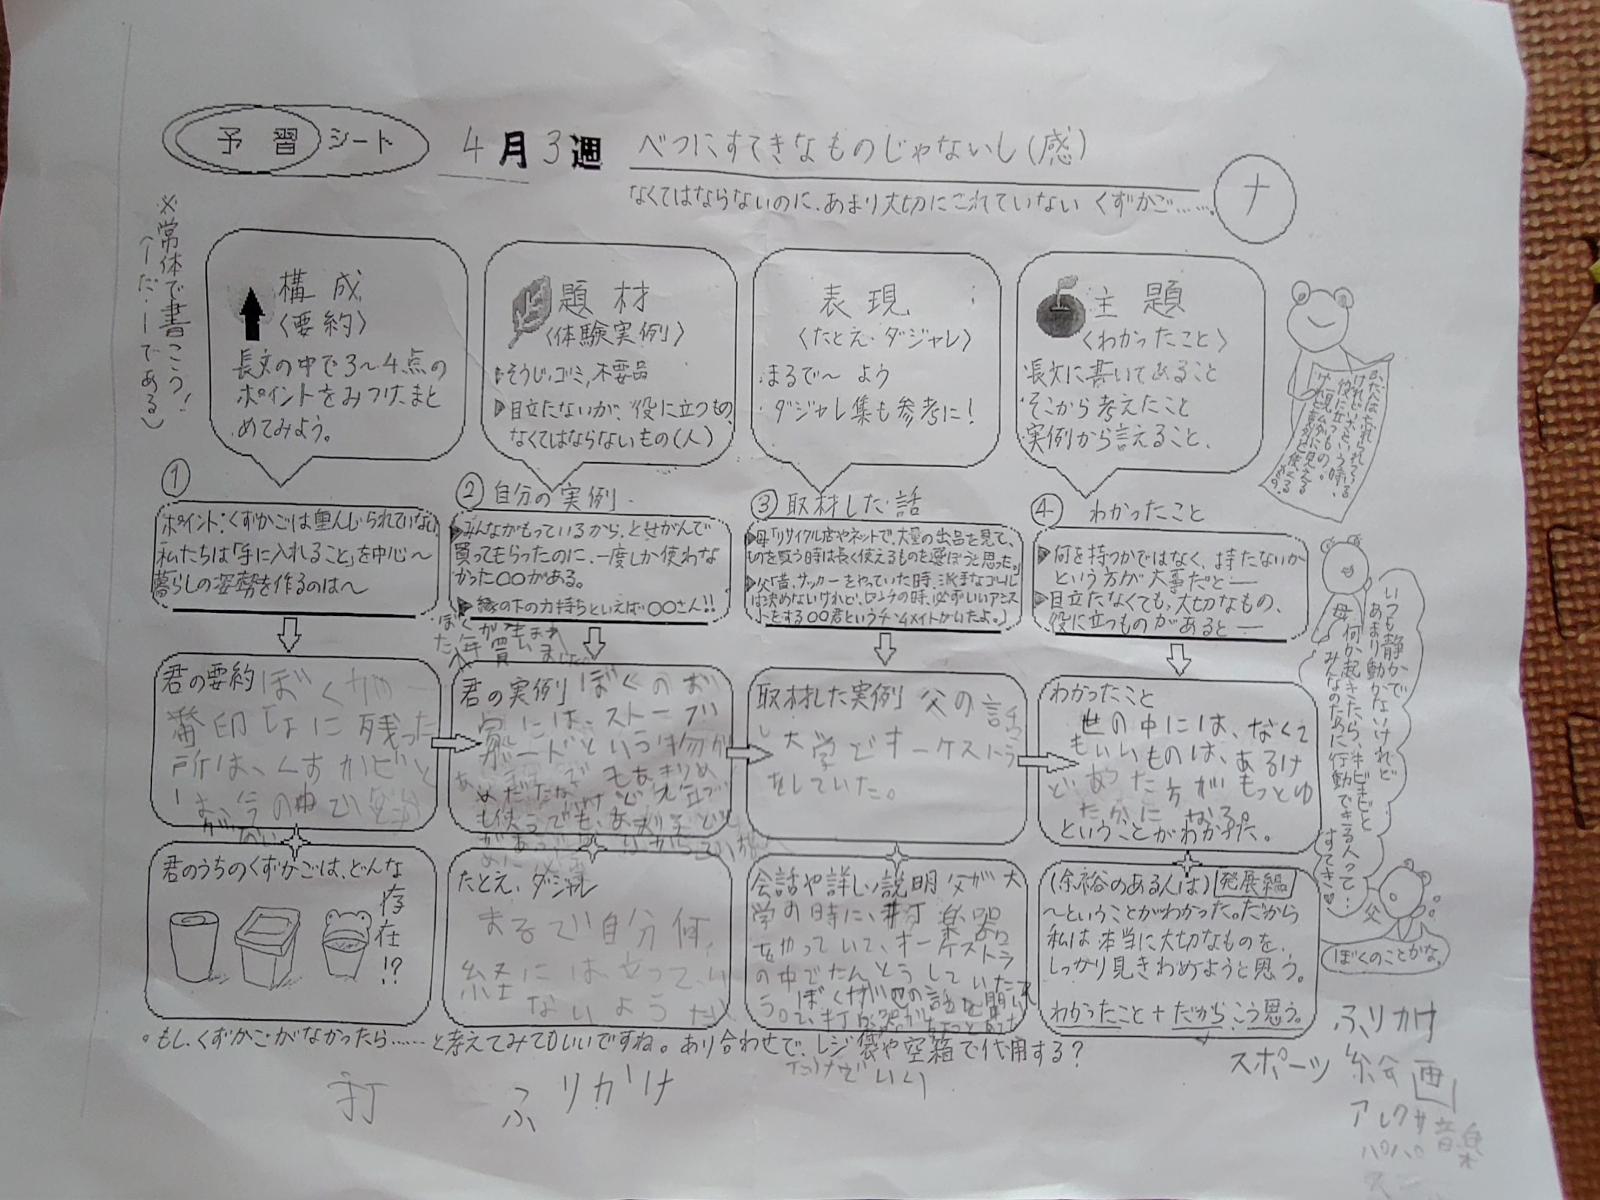 予習シート 4月3週 べつにすてきなものじゃないし(感)
なくてはならないのに、あまり大切にされていない くずかご……。
ナ
※常体で書こう!
(〜だ・〜である)
構成
〈要約〉
長文の中で3〜4点の
ポイントをみつけ、まと
めてみよう。
題材
〈体験実例〉
▶そうじ、ゴミ、不要品
▶目立たないが、役に立つもの、
なくてはならないもの(人)
表現
〈たとえ・ダジャレ〉
・まるで〜 よう
・ダジャレ集も参考に!
主題
〈わかったこと〉
・長文に書いてあること
・そこから考えたこと
・実例から言えること、
①
ポイント:くずかごは重んじられていない
私たちは「手に入れること」を中心〜
暮らしの姿勢を作るのは〜
② 自分の実例
▶みんながもっているから、とせがんで
買ってもらったのに、一度しか使わな
かった〇〇がある。
▶縁の下の力持ちといえば〇〇さん!!
③ 取材した話
▶母「リサイクル店やネットで、大量の出品を見て、
ものを買う時は長く使えるものを選ぼうと思った。」
▶父「昔、サッカーをやっていた時、派手なゴールは
決めないけれど、ピンチの時、必ずいいアシス
トをする〇〇君というチームメイトがいたよ。」
④ わかったこと
▶何を持つかではなく、持たないか
という方が大事だと―
▶目立たなくても、大切なもの、
役に立つものがあると―
いつも静かで
あまり動かないけれど
何か起きたら、キビキビと
みんなのために行動できる人って…
すてき♥
母
父
ぼくのことかな。
ぼくが生まれ
た年 買い
君の要約 ぼくが一
番印しょに残った
所は、くずかご
君の実例 ぼくのお
家には、ストーブガ
ードという物が
取材した実例 父の話
し 大学でオーケストラ
をしていた。
わかったこと
世の中には、なくて
もいいものは、あるけ
ど あった方がもっとゆ
たかに なる。
ということがわかった。
君のうちのくずかごは、どんな
存在!?
たとえ、ダジャレ
まるで自分何
経には立ってい
ないようだ
会話や詳しい説明 父が大
学の時に、打 楽器
をやっていて、オーケストラ
の中でたんとうしていた
(余裕のある人は) 発展編
〜ということがわかった。だから
私は本当に大切なものを、
しっかり見きわめようと思う。
わかったこと+だから こう思う。
。もし、くずかごがなかったら……と考えてみてもいいですね。あり合わせで、レジ袋や空箱で代用する?
打 ふりかけ
ふりかけ
スポーツ 絵画
アレクサ
音楽
パパ